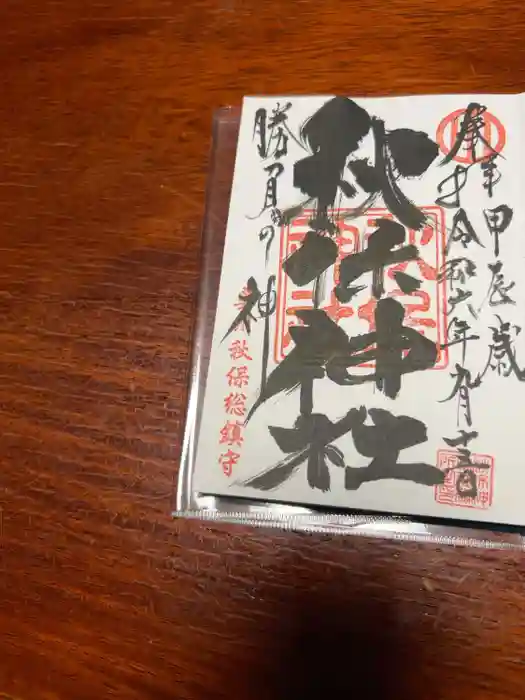 奉拝 甲辰歳
令和六年九月十三日
秋保神社
勝負の神
秋保総鎮守